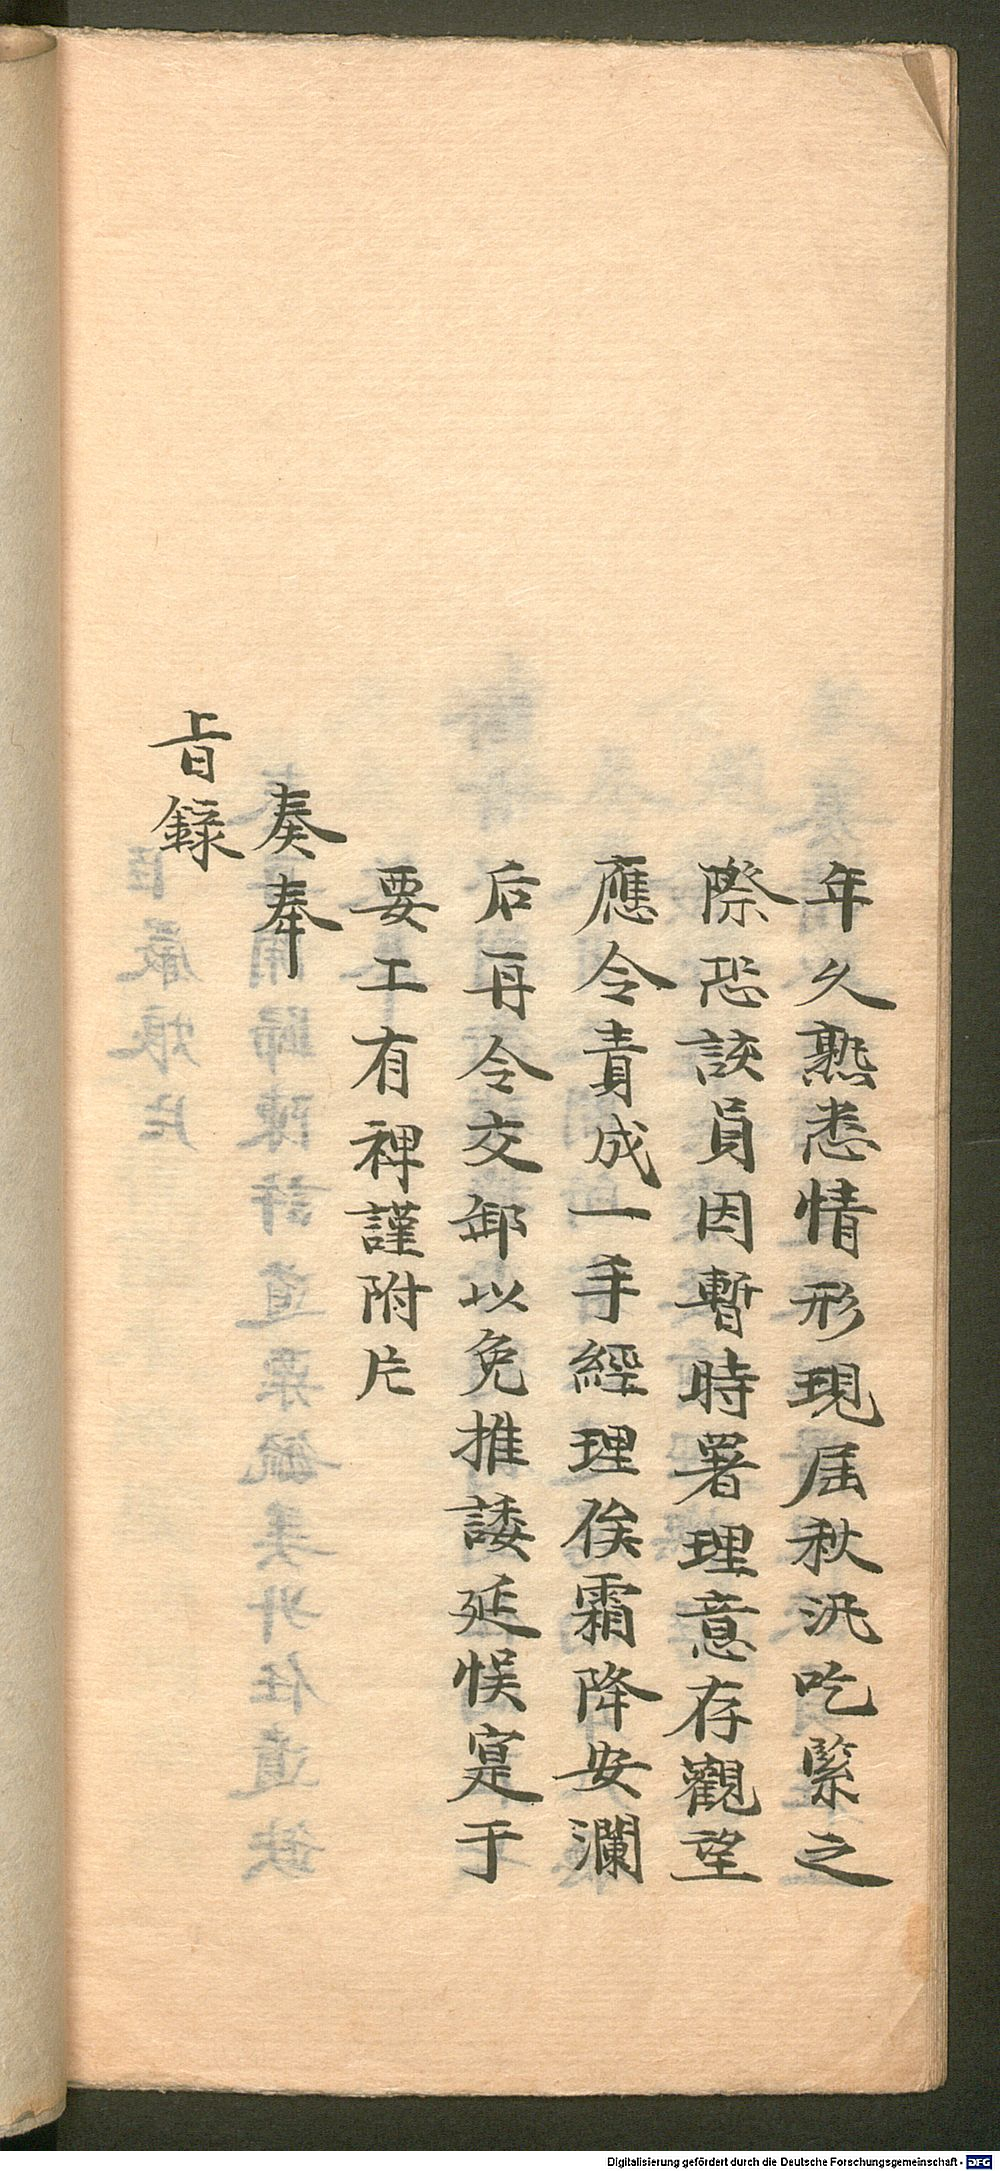 年久熟悉情形現屆秋汛吃緊之
際恐該員因暫時署理意存觀望
應令責成一手經理俟霜降安瀾
后再令交卸以免推諉延悮寔于
要工有裨謹附片
奏奉
旨錄
Digitalisierung gefördert durch die Deutsche Forschungsgemeinschaft - DFG